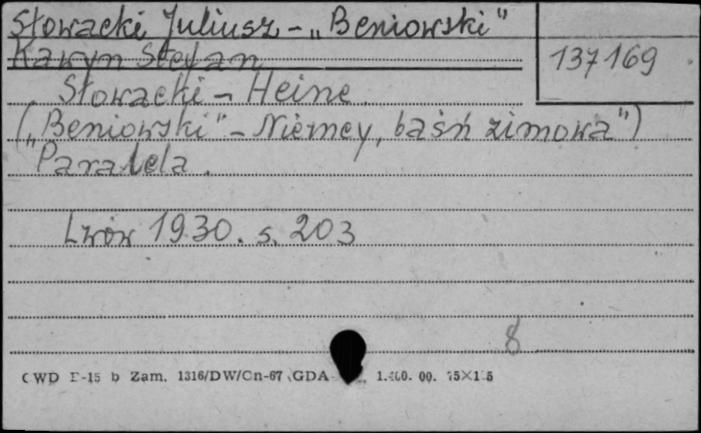 Słowacki Juliusz - „Beniowski"
137169
Kawyn Stefan
Słowacki - Heine.
(„Beniowski" - Niemcy, baśń zimowa")
Paralela.
Lwów 1930. s. 203
8
CWD E-15 b Zam. 1316/DW/Cn-67 GDA